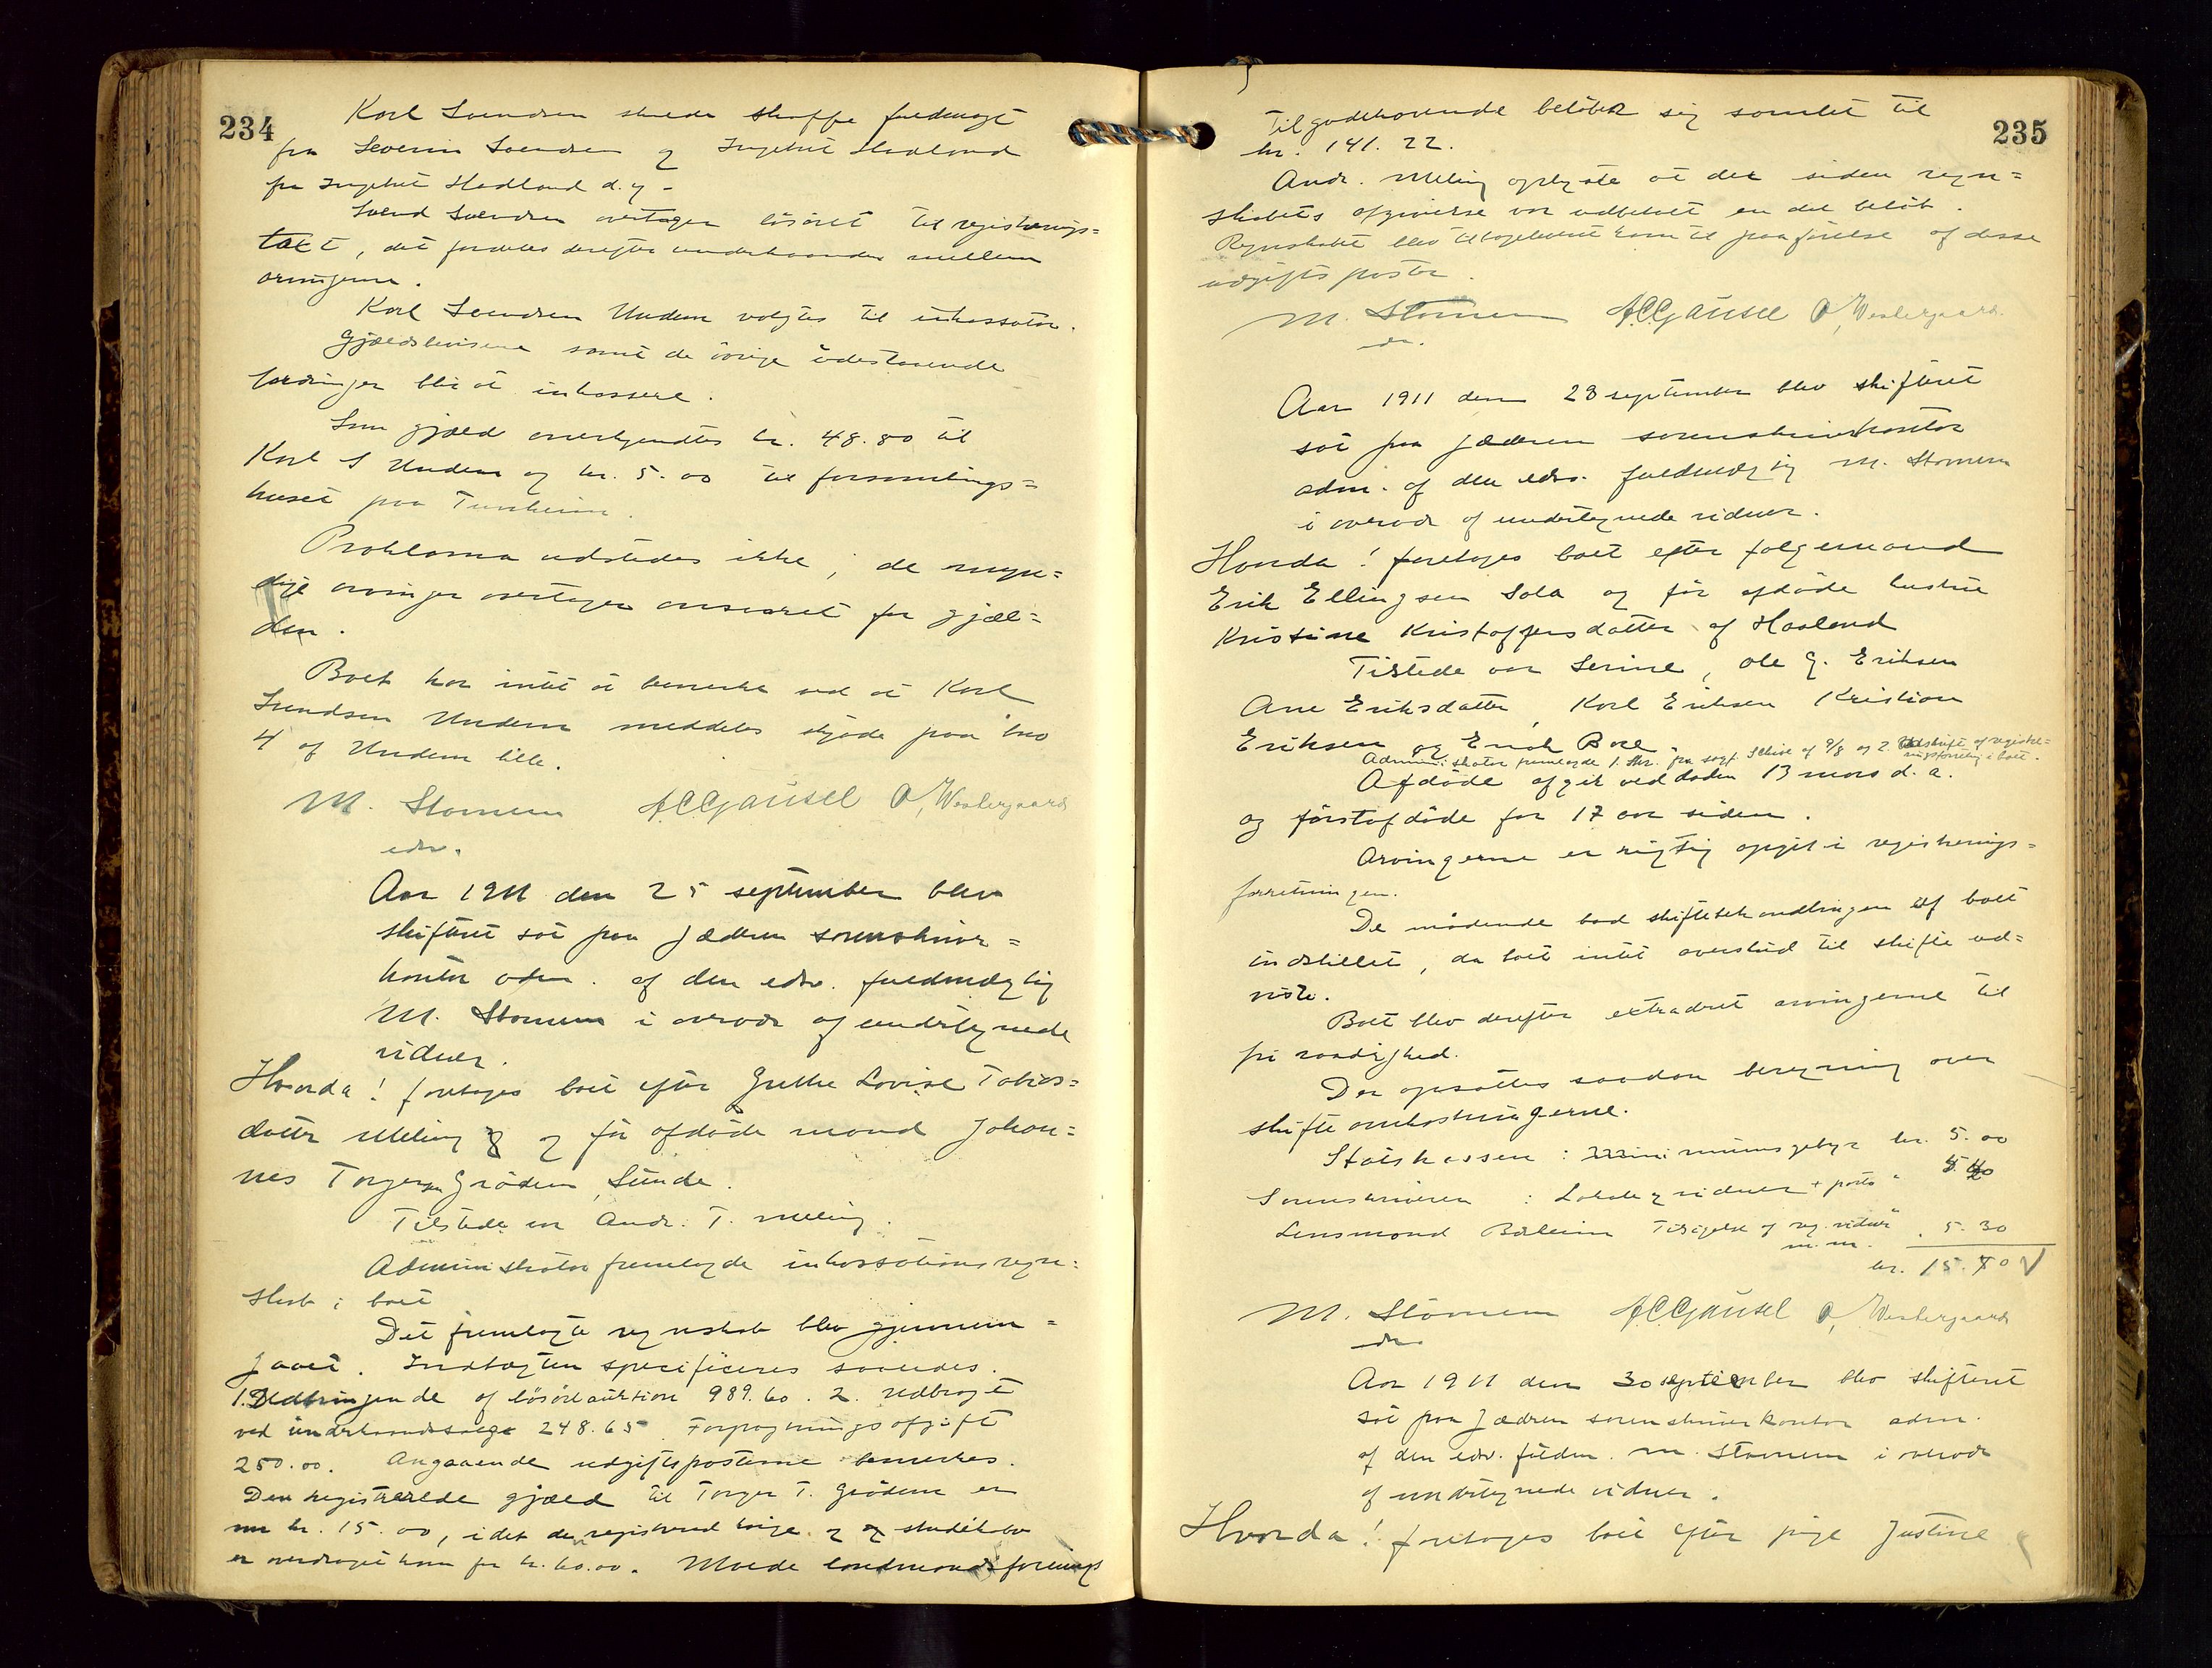 234
Karl Svendsen skulde skaffe fuldmagt
fra Severin Svendsen og Ingebret Hadland
fra Ingebret Hadland d.y.
Svend Svendsen overtager løsøret til registrerings=
takt, det fordeles derefter underhaanden mellem
arvingerne.
Karl Svendsen Undem valgtes til inkassator.
Gjældsbevisene samt de øvrige udestaaende
fordringer blir at inkassere.
Som gjæld anerkjendtes kr. 48.80 til
Karl S Undem og kr. 5.00 til forsamlings=
huset paa Tunheim.
Proklama udstedes ikke, de myn=
dige arvinger overtager ansvaret for gjæl=
den.
Boet har intet at bemerke ved at Karl
Svendsen Undem meddeles skjøde paa bno
4 af Undem lille.
M. Stornem A.C.Gausel O, Westergaard
edsv.
Aar 1911 den 25 september blev
skifteret sat paa Jæderen sorenskriver=
kontor adm. af den edsv. fuldmægtig
M. Stornem i overvær af undertegnede
vidner.
Hvorda! foretoges boet efter Grethe Lovise Tobias=
datter Meling og før afdøde mand Johan=
nes Torgersen Grødem, Sunde.
Tilstede var Andr. T. Meling.
Administrator fremlagde inkassationsregn=
skab i boet
Det fremlagte regnskab blev gjennem=
gaaet. Indtægten specificeres saaledes.
1. Udbringende af løsøreauktion 989.60. 2. Udbragt
ved underhaandssalge 248.65. Forpagtningsafgift
250.00. Angaaende udgiftsposterne bemerkes.
Den registrerede gjæld til Torger T. Grødem er
nu kr. 15.00, idet den registrerede
er overdraget ham for kr. 60.00. landmandsforenings
235
tilgodehavende beløber sig samlet til
kr. 141.22.
Andr. Meling oplyste at der siden regn=
skabets afgivelse var udbetalt en del beløb.
Regnskabet blev tilbageleveret ham til paaførelse af disse
udgiftsposter.
M. Stornem A.C.Gausel O, Westergaard
edsv.
Aar 1911 den 28 september blev skifteret
sat paa Jæderen sorenskriverkontor
adm. af den edsv. fuldmægtig M. Stornem
i overvær af undertegnede vidner.
Hvorda! foretoges boet efter følgemand
Erik Ellingsen Sola og før afdøde hustru
Kristine Kristoffersdatter af Haaland
Tilstede var Serine, Ole G. Eriksen
Ane Eriksdatter, Karl Eriksen Kristian
Eriksen og Enok Boel.
Administrator fremlagde 1. Skr. fra sogf. Schive af 9/8 og 2. Udskrift af registre=
ringsforretning i boet.
Afdøde afgik ved døden 13 mars d. a.
og førstafdøde for 17 aar siden.
Arvingerne er rigtig opgit i registrerings=
forretningen.
De mødende bad skiftebehandlingen af boet
indstillet, da boet intet overskud til skifte ud=
viste.
Boet blev derefter extraderet arvingerne til
fri raadighed.
Der opsattes saadan beregning over
skifteomkostningerne.
Statskassen: minimumsgebyr kr. 5.00
Sorenskriveren: Lokale og vidner + porto " 5.40
Lensmand Tilsigelse af reg. vidner " 5.30
m.m.
kr. 15.70
M. Stornem A.C.Gausel O, Westergaard
edsv.
Aar 1911 den 30 september blev skifteret
sat paa Jædren sorenskriverkontor adm.
af den edsv. fuldm. M. Stornem i overvær
af undertegnede vidner.
Hvorda! foretoges boet efter pige Justine